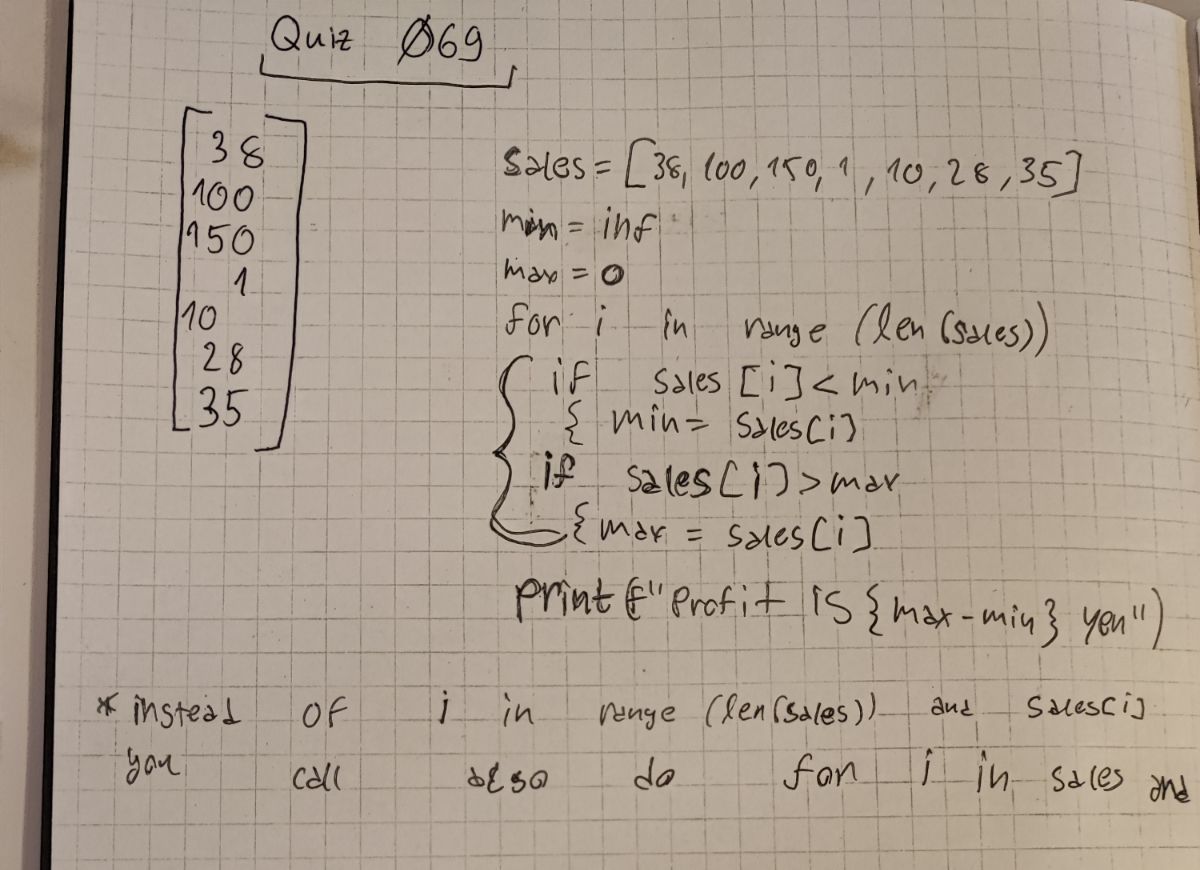 Quiz Ø69
38
100
150
1
10
28
35
sales = [38, 100, 150, 1, 10, 28, 35]
min = inf
max = 0
for i in range (len (sales))
if sales [i] < min
{ min = sales[i]
if sales [i] > max
{ max = sales [i]
print f" Profit is {max - min} yen")
* instead of i in range (len (sales)) and sales[i]
you call also do for i in sales and